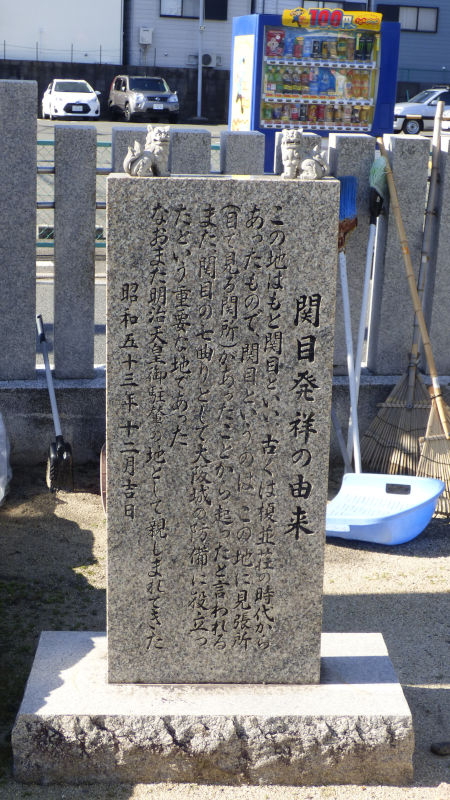 関目発祥の由来
この地はもと関目といい、古くは榎並荘の時代から
あったもので、関目というのは、この地に見張所
(目で見る関所)があったことから起ったと言われる
また、関目の七曲りとして大阪城の防備に役立っ
たという重要な地であった
なおまた明治天皇御駐輦の地として親しまれてきた
昭和五十三年十二月吉日
100円